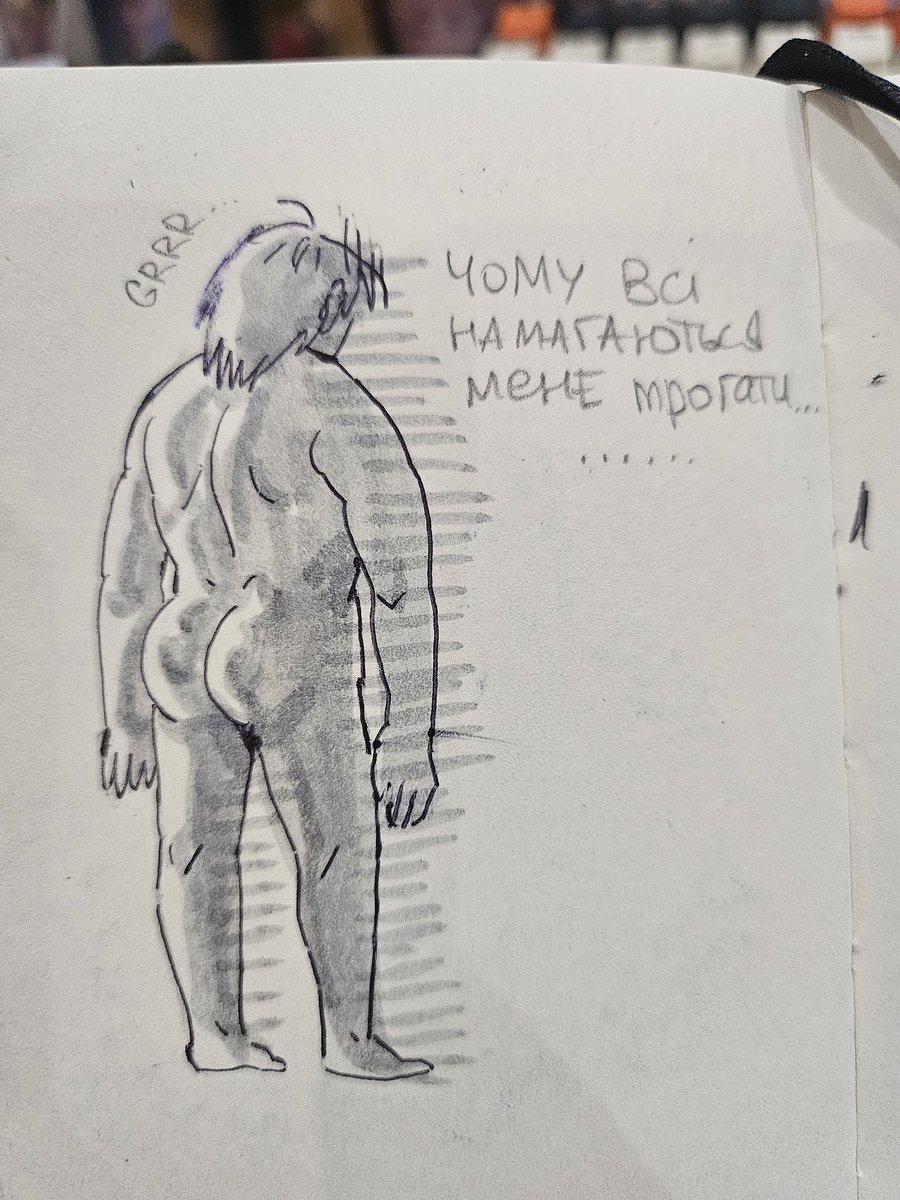 GRRR...
ЧОМУ ВСІ
НАМАГАЮТЬСЯ
МЕНЕ трогати...
......